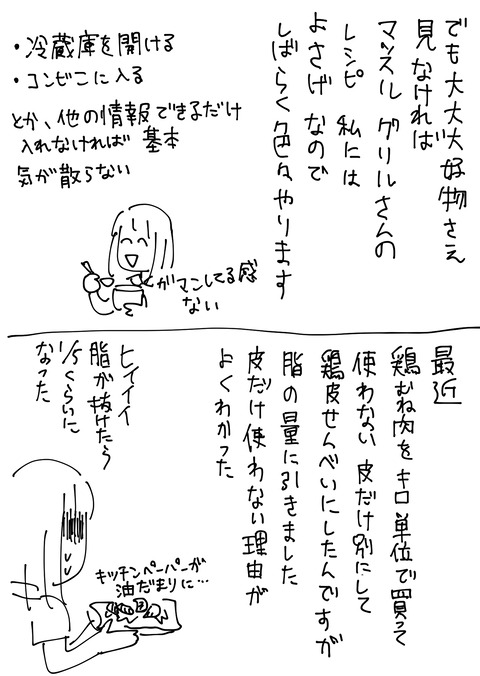 でも大大大好物さえ
見なければ
マッスルグリルさんの
レシピ 私には
よさげなので
しばらく色々やります
・冷蔵庫を開ける
・コンビニに入る
とか、他の情報できるだけ
入れなければ 基本
気が散らない
ガマンしてる感
ない
最近
鶏むね肉をキロ単位で買って
使わない皮だけ別にして
鶏皮せんべいにしたんですが
脂の量に引きました
皮だけ使わない理由が
よくわかった
ヒイイイ
脂が抜けたら
1/5くらいに
なった
キッチンペーパーが
油だまりに…